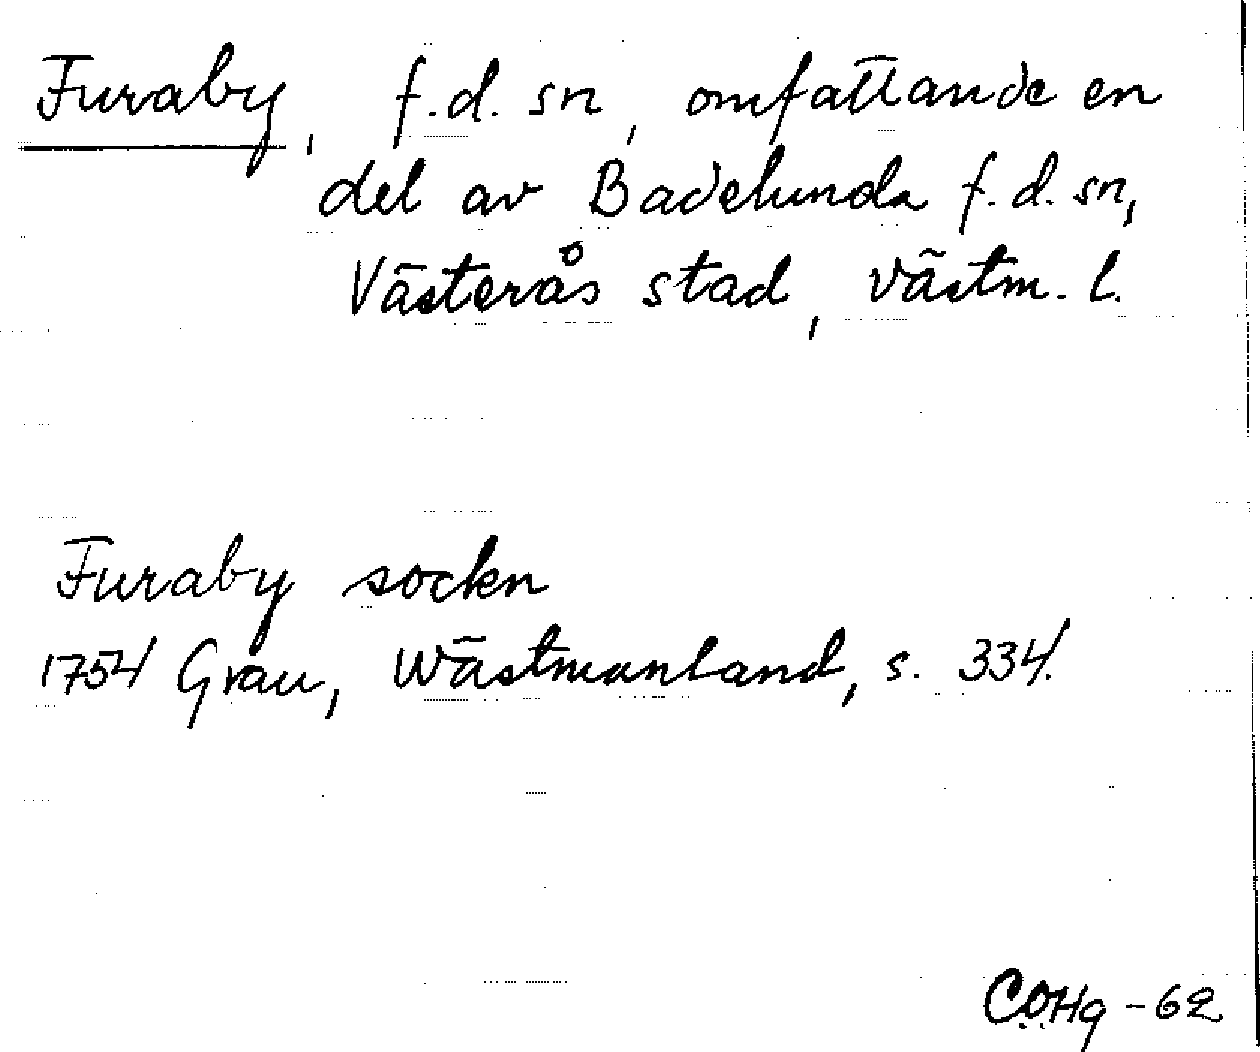 Furaby, f.d. sn, omfattande en
del av Badelunda f.d. sn,
Västerås stad, Västm. l.
Furaby sockn
1754 Grau, Wästmanland, s. 334.
COHg -62